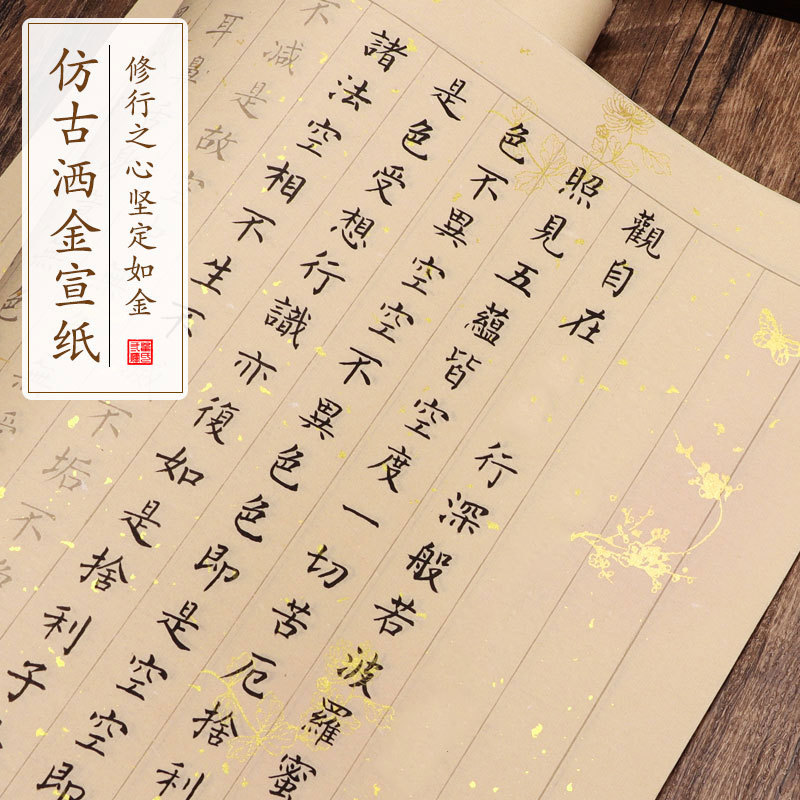 仿古洒金宣纸
修行之心坚定如金
觀自在行深般若波羅蜜
照見五蘊皆空度一切苦厄捨利
色不異空空不異色色即是空空即
是色受想行識亦復如是捨利子
諸法空相不生不不垢不
不減是故空
耳鼻
色